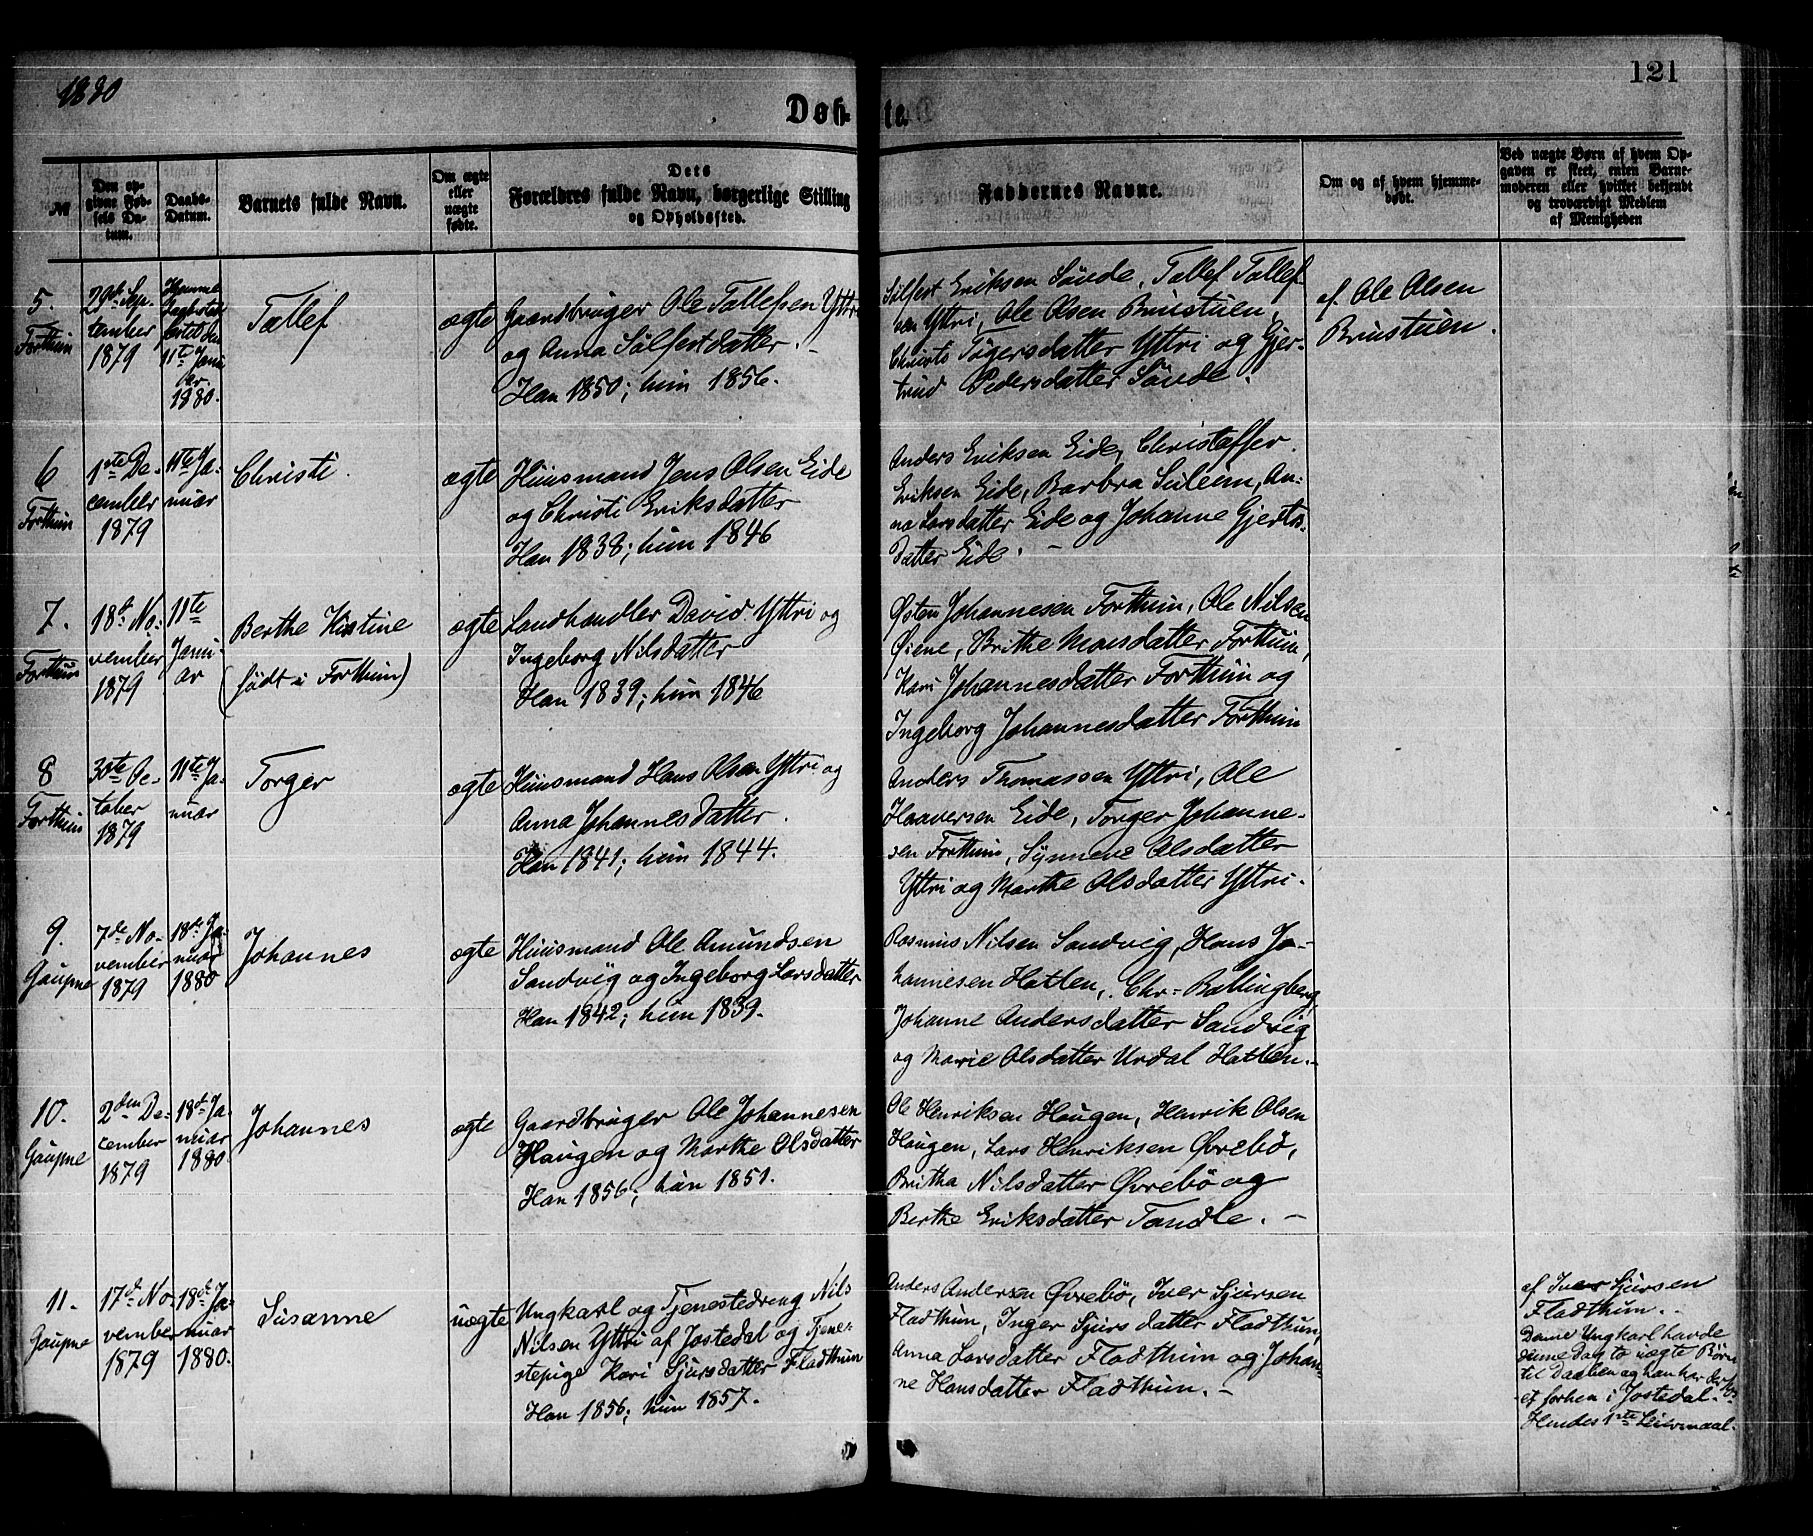 1880
121
Døbte.
№
Den opgivne Fødsels Datum.
Daabs-Datum.
Barnets fulde Navn.
Om ægte eller uægte fødte.
Dets Forældres fulde Navn, borgerlige Stilling og Opholdssted.
Faddernes Navne.
Om og af hvem hjemmedøbt.
Ved uægte Børn af hvem Opgaven er skeet, enten Barnemoderen eller hvilket bekjendt og troværdigt Medlem af Menigheden
5.
Forthun
29de Sep-
tember
1879
Hjemme
11te Janu
ar.
1880.
Tollef
ægte
Gaardbruger Ole Tollefsen Yttri
og Anna Sølfestdatter. -
Han 1850; hun 1856.
Sølfest Eriksen Sønde, Tollef Tollef-
sen Yttri, Ole Olsen Brustuen,
Christi Togersdatter Yttri og Gjer-
trud Pedersdatter Sønde.
af Ole Olsen
Brustuen.
6
Forthun
1ste De-
cember
1879
11te Ja-
nuar
Christi.
ægte
Huusmand Jens Olsen Eide
og Christi Eriksdatter
Han 1838; hun 1846
Anders Eriksen Eide, Christoffer
Eriksen Eide, Barbra Suleim, An-
na Larsdatter Eide og Johanne Gjerts-
datter Eide. -
7.
Forthun
18de No-
vember
1879
11te
Janu-
ar
Berthe Kistine
(født i Forthun)
ægte
Landhandler David Yttri og
Ingeborg Nilsdatter
Han 1839; hun 1846
Østen Johannesen Forthun, Ole Nilsen
Øiene, Brithe Monsdatter Forthun,
Kari Johannesdatter Forthun og
Ingeborg Johannesdatter Forthun
8
Forthun
30te Oc-
tober
1879
11te Ja-
nuar
Torger
ægte
Huusmand Hans Olsen Yttri og
Anna Johannesdatter.
Han 1841; hun 1844.
Anders Thomassen Yttri, Ole
Haaversen Eide, Torger Johanne-
sen Forthun, Synneve Olsdatter
Yttri og Marthe Olsdatter Yttri.
9.
Gaupne
7de No-
vember
1879
18de Ja-
nuar
1880
Johannes
ægte
Huusmand Ole Amundsen
Sandvig og Ingeborg Larsdatter
Han 1842; hun 1839.
Rasmus Nilsen Sandvig, Hans Jo-
hannesen Hatlen, Chr. Ballingberg,
Johanne Andersdatter Sandvig
og Marie Olsdatter Urdal Hatlen. -
10.
Gaupne
2den De-
cember
1879
18de Ja-
nuar
1880
Johannes
ægte
Gaardbruger Ole Johannesen
Haugen og Marthe Olsdatter
Han 1856; hun 1851.
Ole Henriksen Haugen, Henrik Olsen
Haugen, Lars Henriksen Øvrebø,
Britha Nilsdatter Øvrebø og
Berthe Eriksdatter Tandle. -
11.
Gaupne
17de No-
vember
1879
18de Ja-
nuar
1880.
Susanne
uægte
Ungkarl og Tjenestedreng Nils
Nilsen Yttri af Jostedal og Tjene-
stepige Kari Sjursdatter Fladthun
Han 1856; hun 1857.
Anders Andersen Øvrebø, Iver Sjursen
Fladthun, Inger Sjursdatter Fladthun,
Anna Larsdatter Fladthun og Johan-
ne Hansdatter Fladthun. -
af Iver Sjursen
Fladthun. -
Denne Ungkarl havde
denne dag to uægte Børn
til Daaben og han har
et forhen i Jostedal. -
Hendes 1ste Leiermaal.